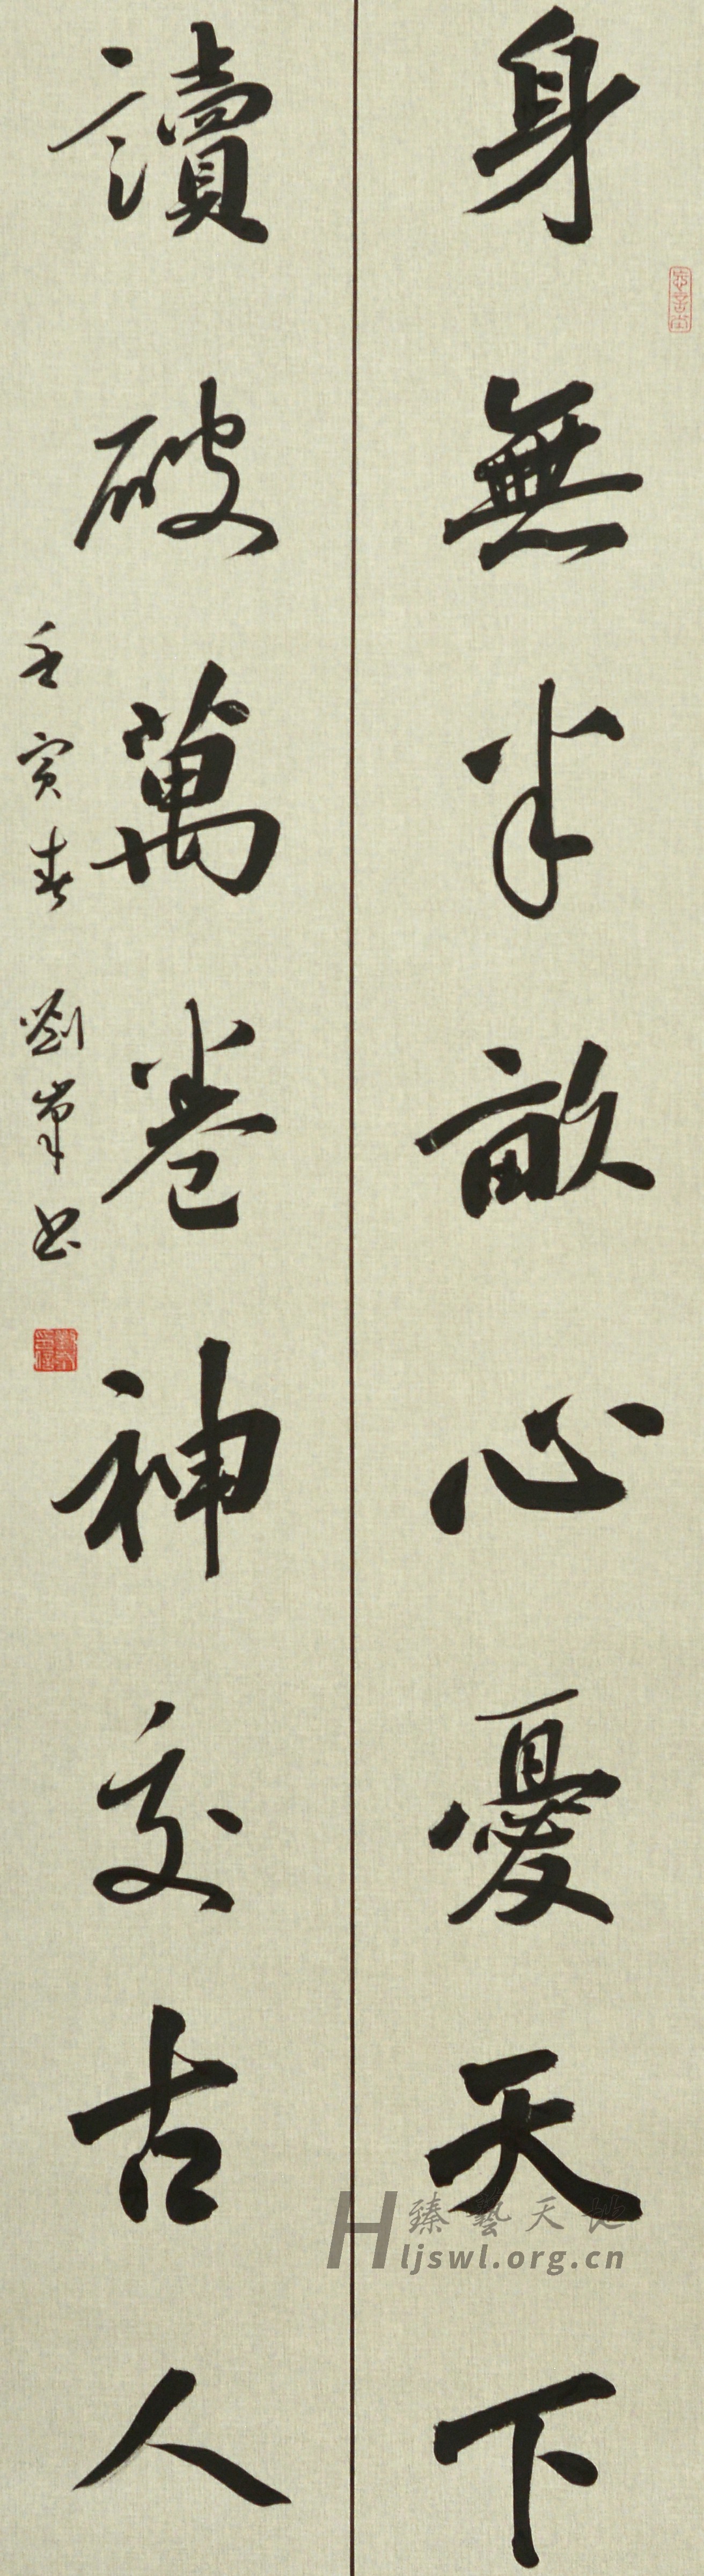 身無半畝心憂天下
讀破萬卷神交古人
壬寅春 劉峯书
臻藝天地
ljswl.org.cn